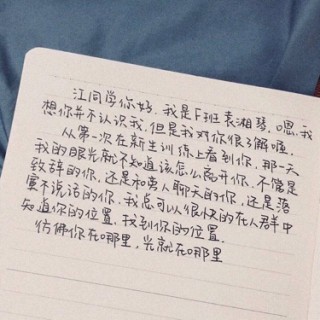 江同学你好，我是F班袁湘琴，嗯，我
想你并不认识我，但是我对你很了解哦，
从第一次在新生训练上看到你，那一天
我的眼光就不知道该怎么离开你，不管是
致辞的你，还是和旁人聊天的你，还是落
寞不说话的你，我总可以很快的在人群中
知道你的位置，找到你的位置，
仿佛你在哪里，光就在哪里